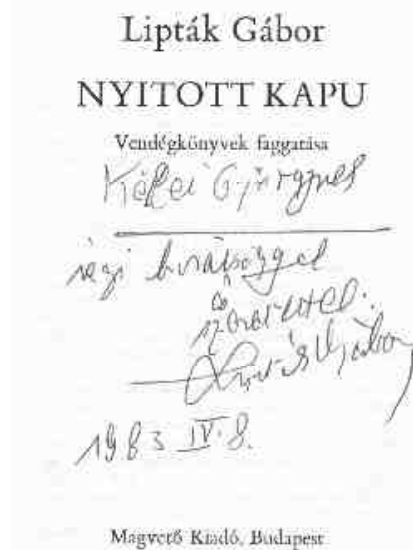 Lipták Gábor
NYITOTT KAPU
Vendégkönyvek faggatása
Kéfei Györgynek
régi barátsággal
és
szeretettel.
Lipták Gábor
1983 IV. 8.
Magvető Kiadó, Budapest